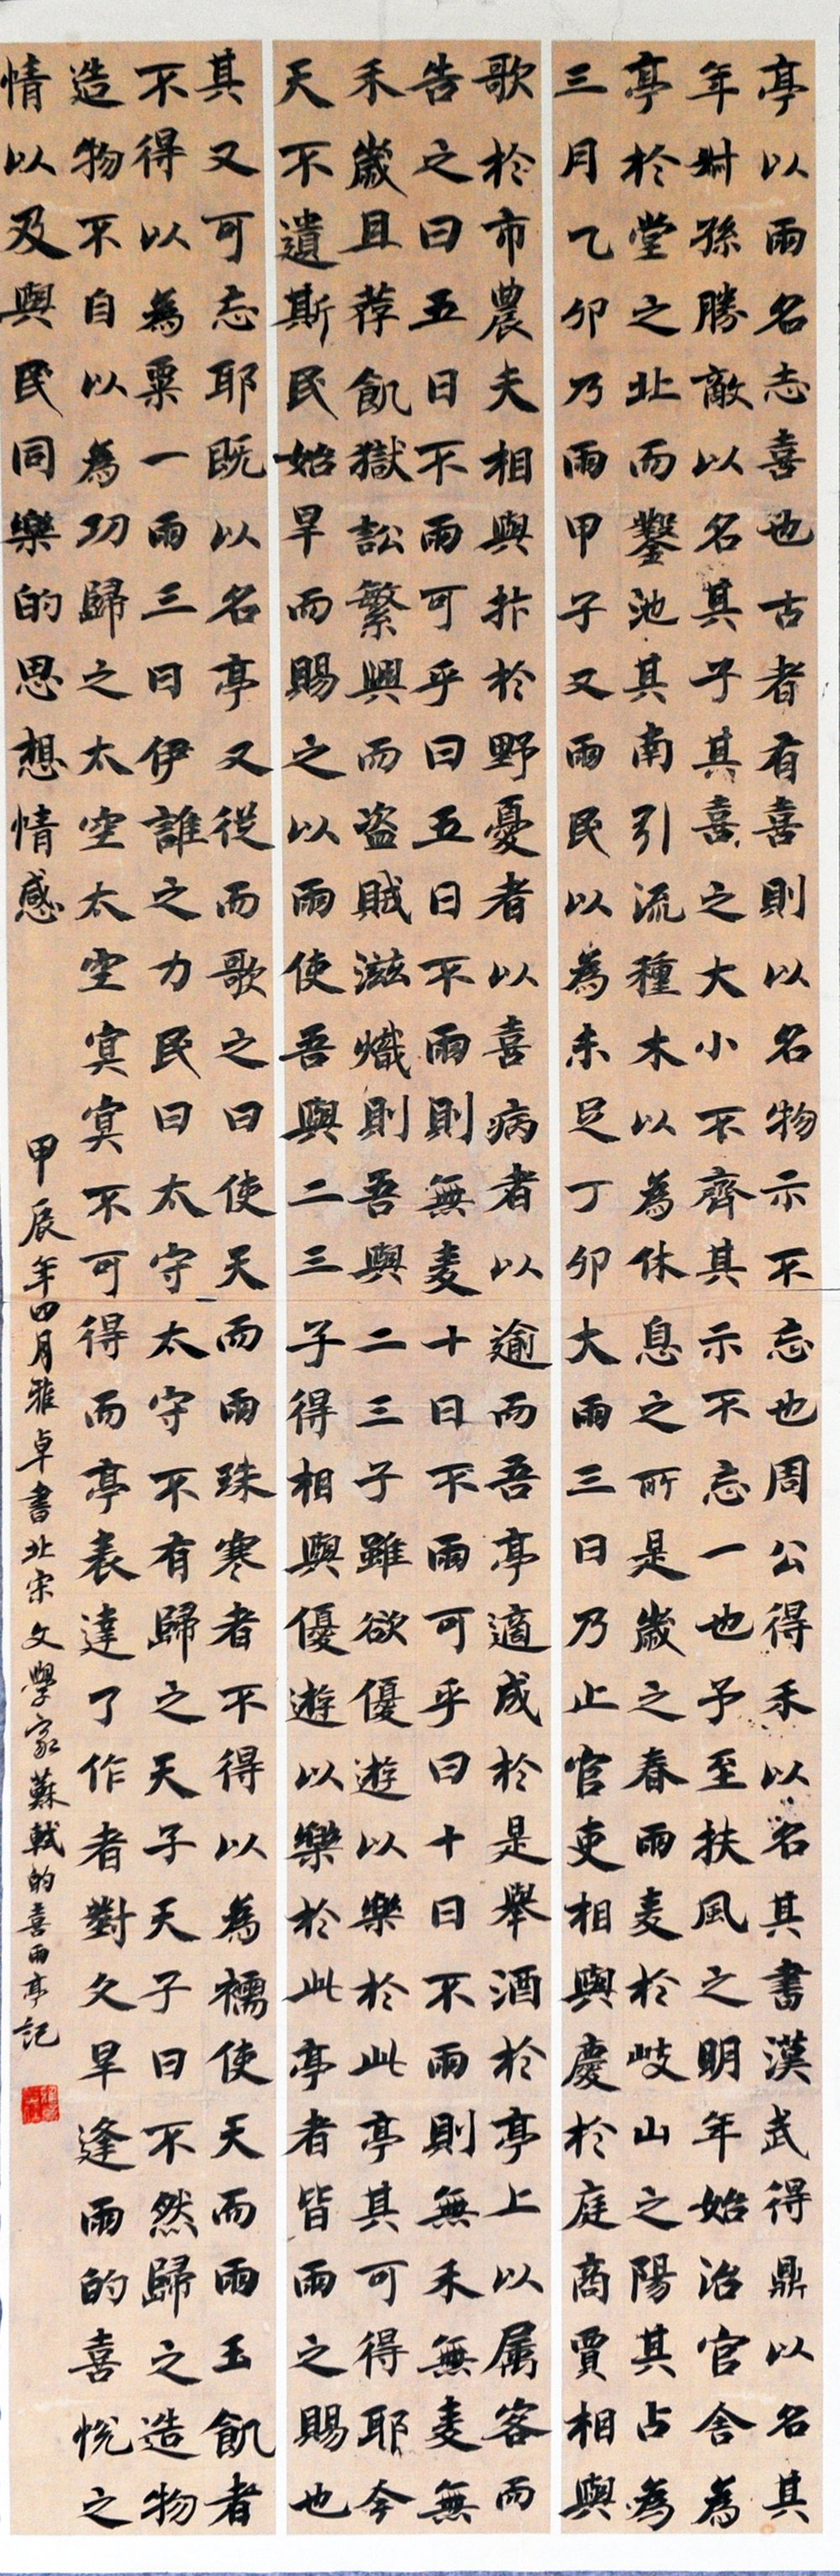 亭以雨名志喜也古者有喜則以名物示不忘也周公得禾以名其書漢武得鼎以名其
年叔孫勝敵以名其子其喜之大小不齊其示不忘一也予至扶風之明年始治官舍為
亭於堂之北而鑿池其南引流種木以為休息之所是歲之春雨麦於岐山之陽其占為
三月乙卯乃雨甲子又雨民以為未足丁卯大雨三日乃止官吏相與慶於庭商賈相與
歌於市農夫相與抃於野憂者以喜病者以逾而吾亭適成於是舉酒於亭上以属客而
告之曰五日不雨可乎曰五日不雨則無麦十日不雨可乎曰十日不雨則無禾無麦無
禾歲且荐飢獄訟繁興而盗賊滋熾則吾與二三子雖欲優遊以樂於此亭其可得耶今
天不遺斯民始旱而賜之以雨使吾與二三子得相與優遊以樂於此亭者皆雨之賜也
其又可忘耶既以名亭又從而歌之曰使天而雨珠寒者不得以為襦使天而雨玉飢者
不得以為粟一雨三日伊誰之力民曰太守太守不有歸之天子天子曰不然歸之造物
造物不自以為功歸之太空太空冥冥不可得而亭表達了作者對久旱逢雨的喜悅之
情以及與民同樂的思想情感
甲辰年四月雅卓書北宋文學家蘇軾的喜雨亭記